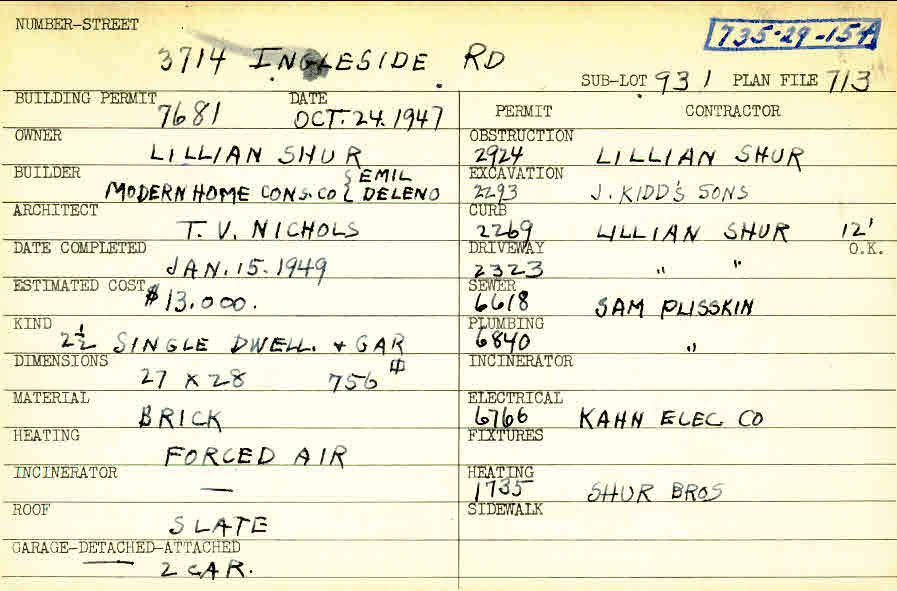 NUMBER-STREET
735-29-154
3714 INGLESIDE RD
SUB-LOT 931 PLAN FILE 713
BUILDING PERMIT DATE
7681 OCT. 24. 1947
OWNER
LILLIAN SHUR
BUILDER
MODERN HOME CONS. CO { EMIL
DELENO
ARCHITECT
T. V. NICHOLS
DATE COMPLETED
JAN. 15. 1949
ESTIMATED COST
$13.000.
KIND
2½ SINGLE DWELL. + GAR
DIMENSIONS
27 X 28 756
MATERIAL
BRICK
HEATING
FORCED AIR
INCINERATOR
—
ROOF
SLATE
GARAGE-DETACHED-ATTACHED
2 CAR.
PERMIT CONTRACTOR
OBSTRUCTION
2924 LILLIAN SHUR
EXCAVATION
2293 J. KIDD'S SONS
CURB
2269 LILLIAN SHUR 12'
DRIVEWAY O.K.
2323 " "
SEWER
6618 SAM PLISSKIN
PLUMBING
6840 "
INCINERATOR
ELECTRICAL
6766 KAHN ELEC CO
FIXTURES
HEATING
1735 SHUR BROS
SIDEWALK